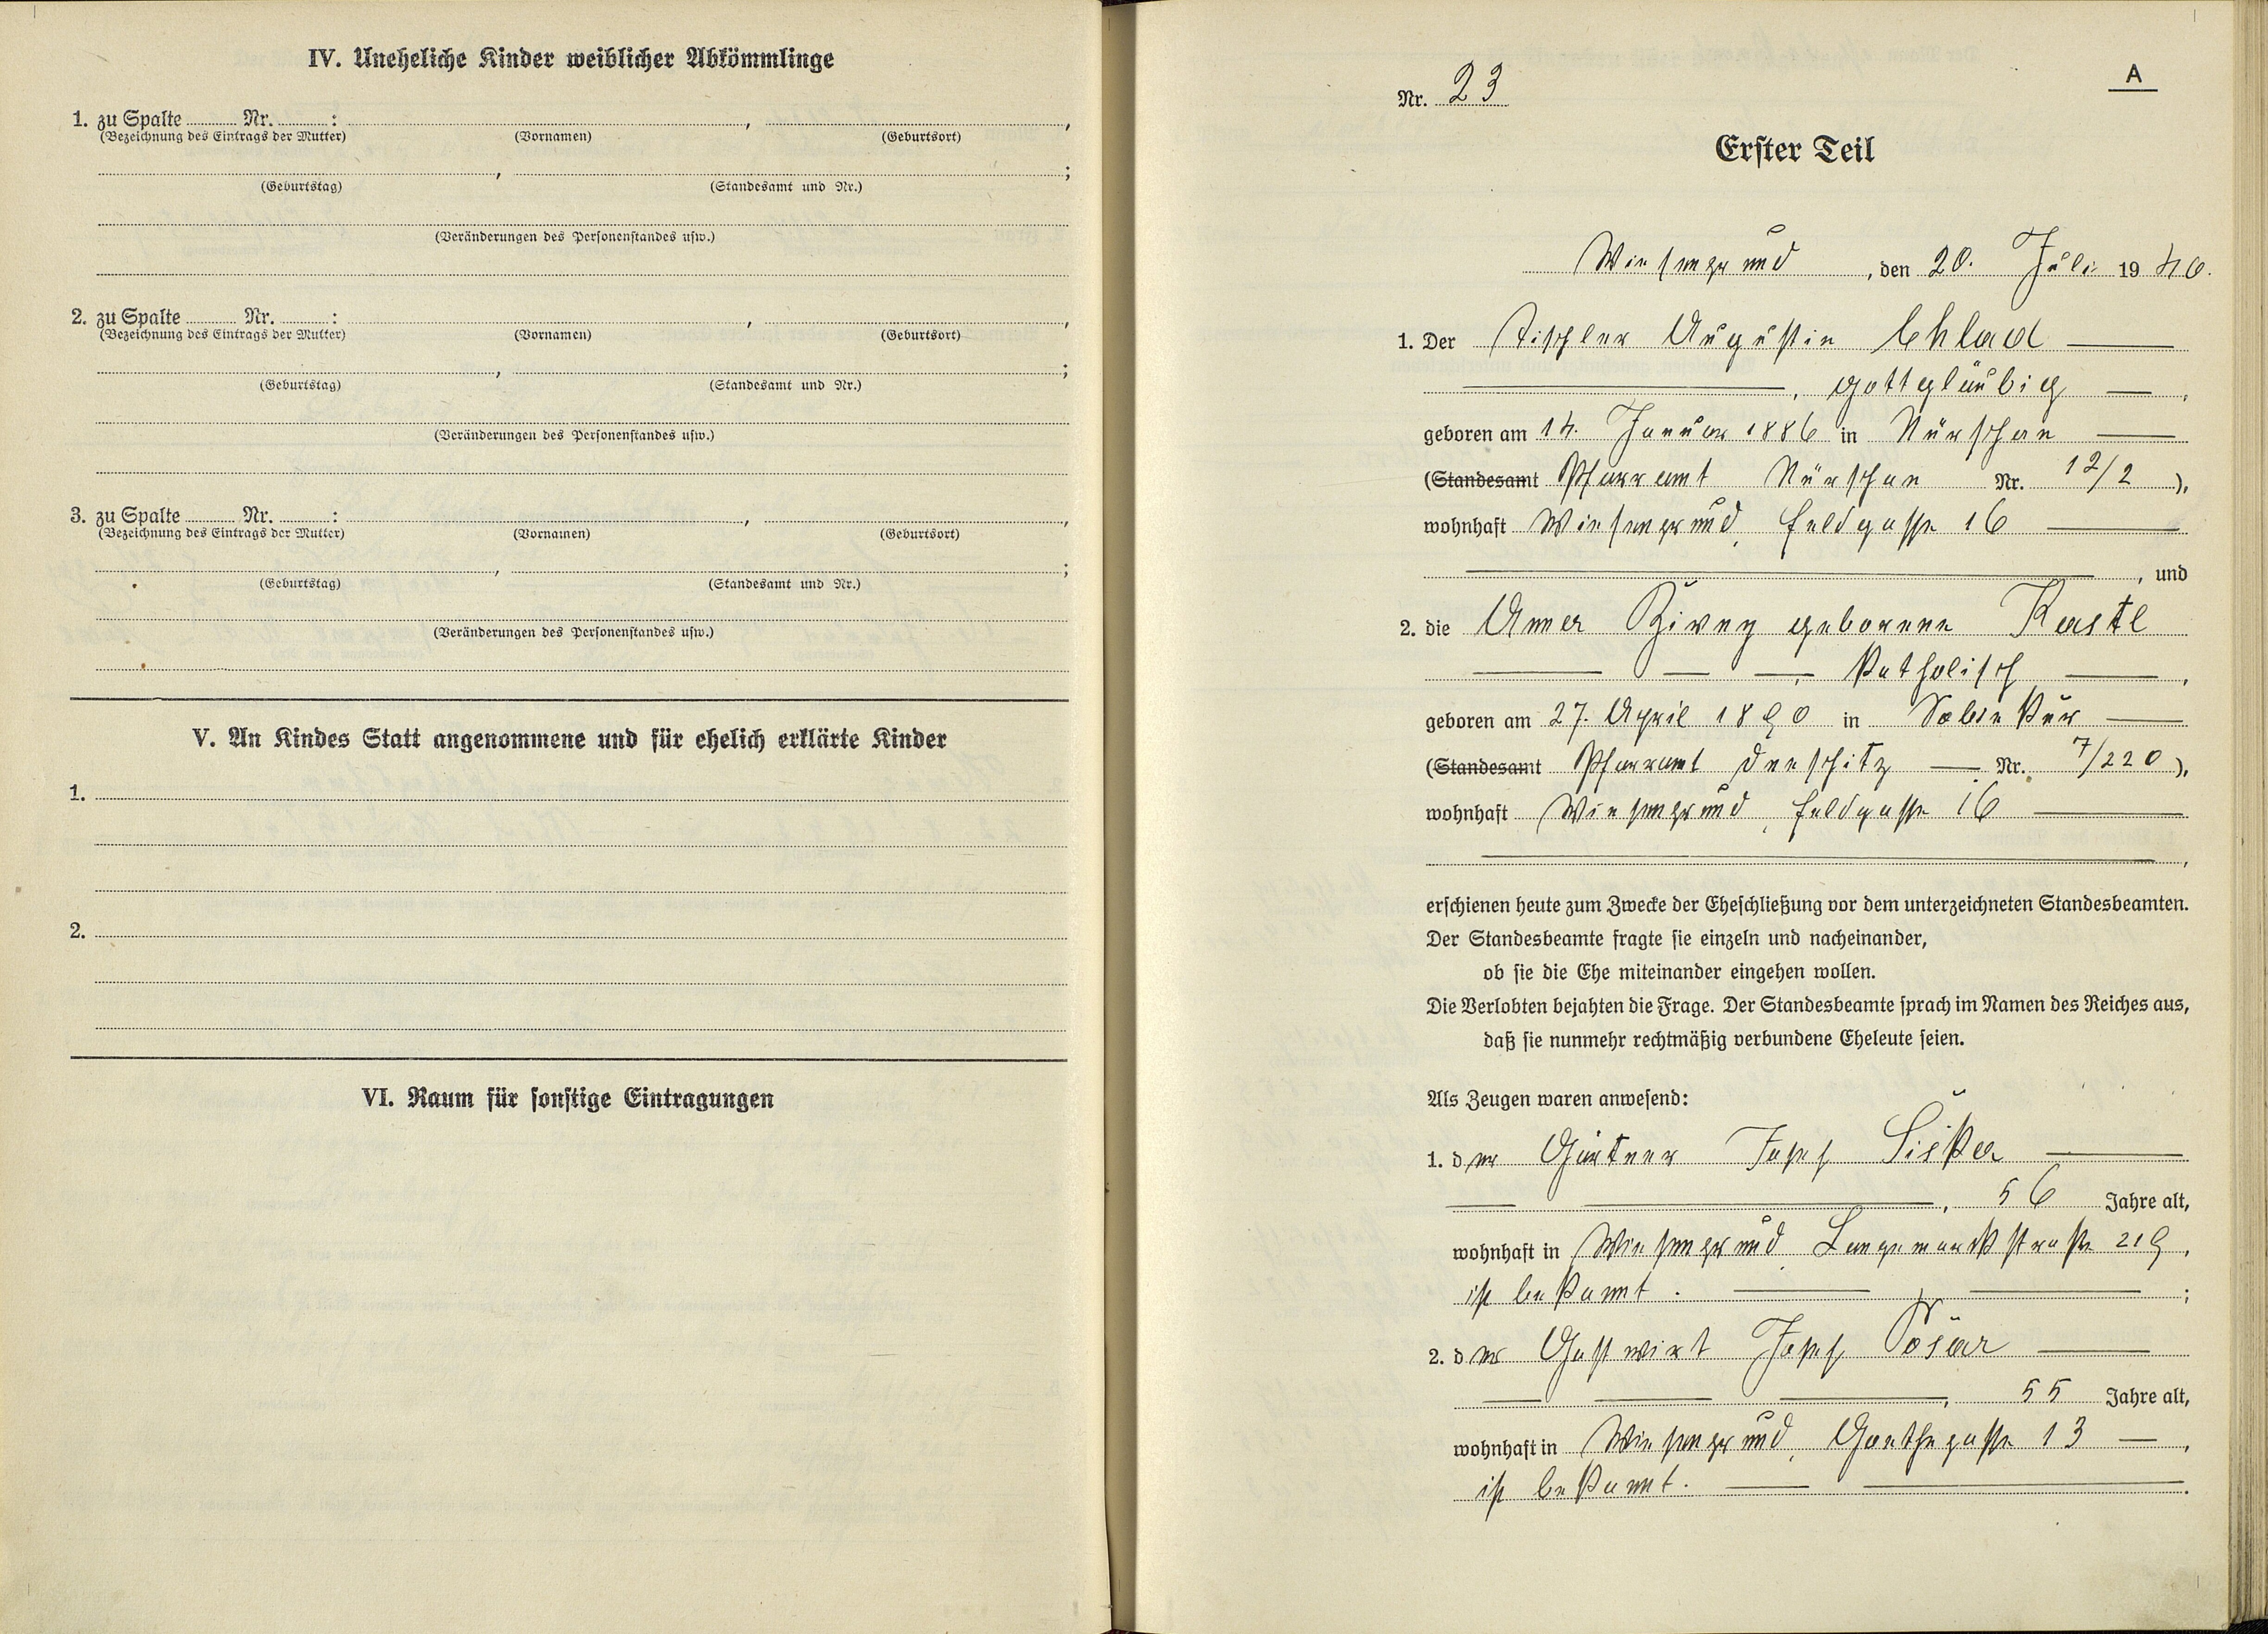 IV. Uneheliche Kinder weiblicher Abkömmlinge
1. zu Spalte Nr. : , ,
(Bezeichnung des Eintrags der Mutter) (Vornamen) (Geburtsort)
, ;
(Geburtstag) (Standesamt und Nr.)
(Veränderungen des Personenstandes usw.)
2. zu Spalte Nr. : , ,
(Bezeichnung des Eintrags der Mutter) (Vornamen) (Geburtsort)
, ;
(Geburtstag) (Standesamt und Nr.)
(Veränderungen des Personenstandes usw.)
3. zu Spalte Nr. : , ,
(Bezeichnung des Eintrags der Mutter) (Vornamen) (Geburtsort)
, ;
(Geburtstag) (Standesamt und Nr.)
(Veränderungen des Personenstandes usw.)
V. An Kindes Statt angenommene und für ehelich erklärte Kinder
1.
2.
VI. Raum für sonstige Eintragungen
A
Nr. 23
Erster Teil
Wiesengrund, den 20. Juli 1940.
1. Der Tischler Augustin Chlad —
—, gottgläubig —,
geboren am 14. Januar 1886 in Nürschan —
(Standesamt Pfarramt Nürschan Nr. 12/2),
wohnhaft Wiesengrund, Feldgasse 16 —
—, und
2. die Anna Živny geborene Kastl
— — —, katholisch —,
geboren am 27. April 1890 in Sobiekur —
(Standesamt Pfarramt Dneschitz — Nr. 7/220),
wohnhaft Wiesengrund, Feldgasse 16 —
—,
erschienen heute zum Zwecke der Eheschließung vor dem unterzeichneten Standesbeamten.
Der Standesbeamte fragte sie einzeln und nacheinander,
ob sie die Ehe miteinander eingehen wollen.
Die Verlobten bejahten die Frage. Der Standesbeamte sprach im Namen des Reiches aus,
daß sie nunmehr rechtmäßig verbundene Eheleute seien.
Als Zeugen waren anwesend:
1. der Gärtner Josef Šiška —
— —, 56 Jahre alt,
wohnhaft in Wiesengrund, Langemarckstraße 219,
ist bekannt. — —;
2. der Gastwirt Josef —
— — —, 55 Jahre alt,
wohnhaft in Wiesengrund, Goethegasse 13 —,
ist bekannt. — —.